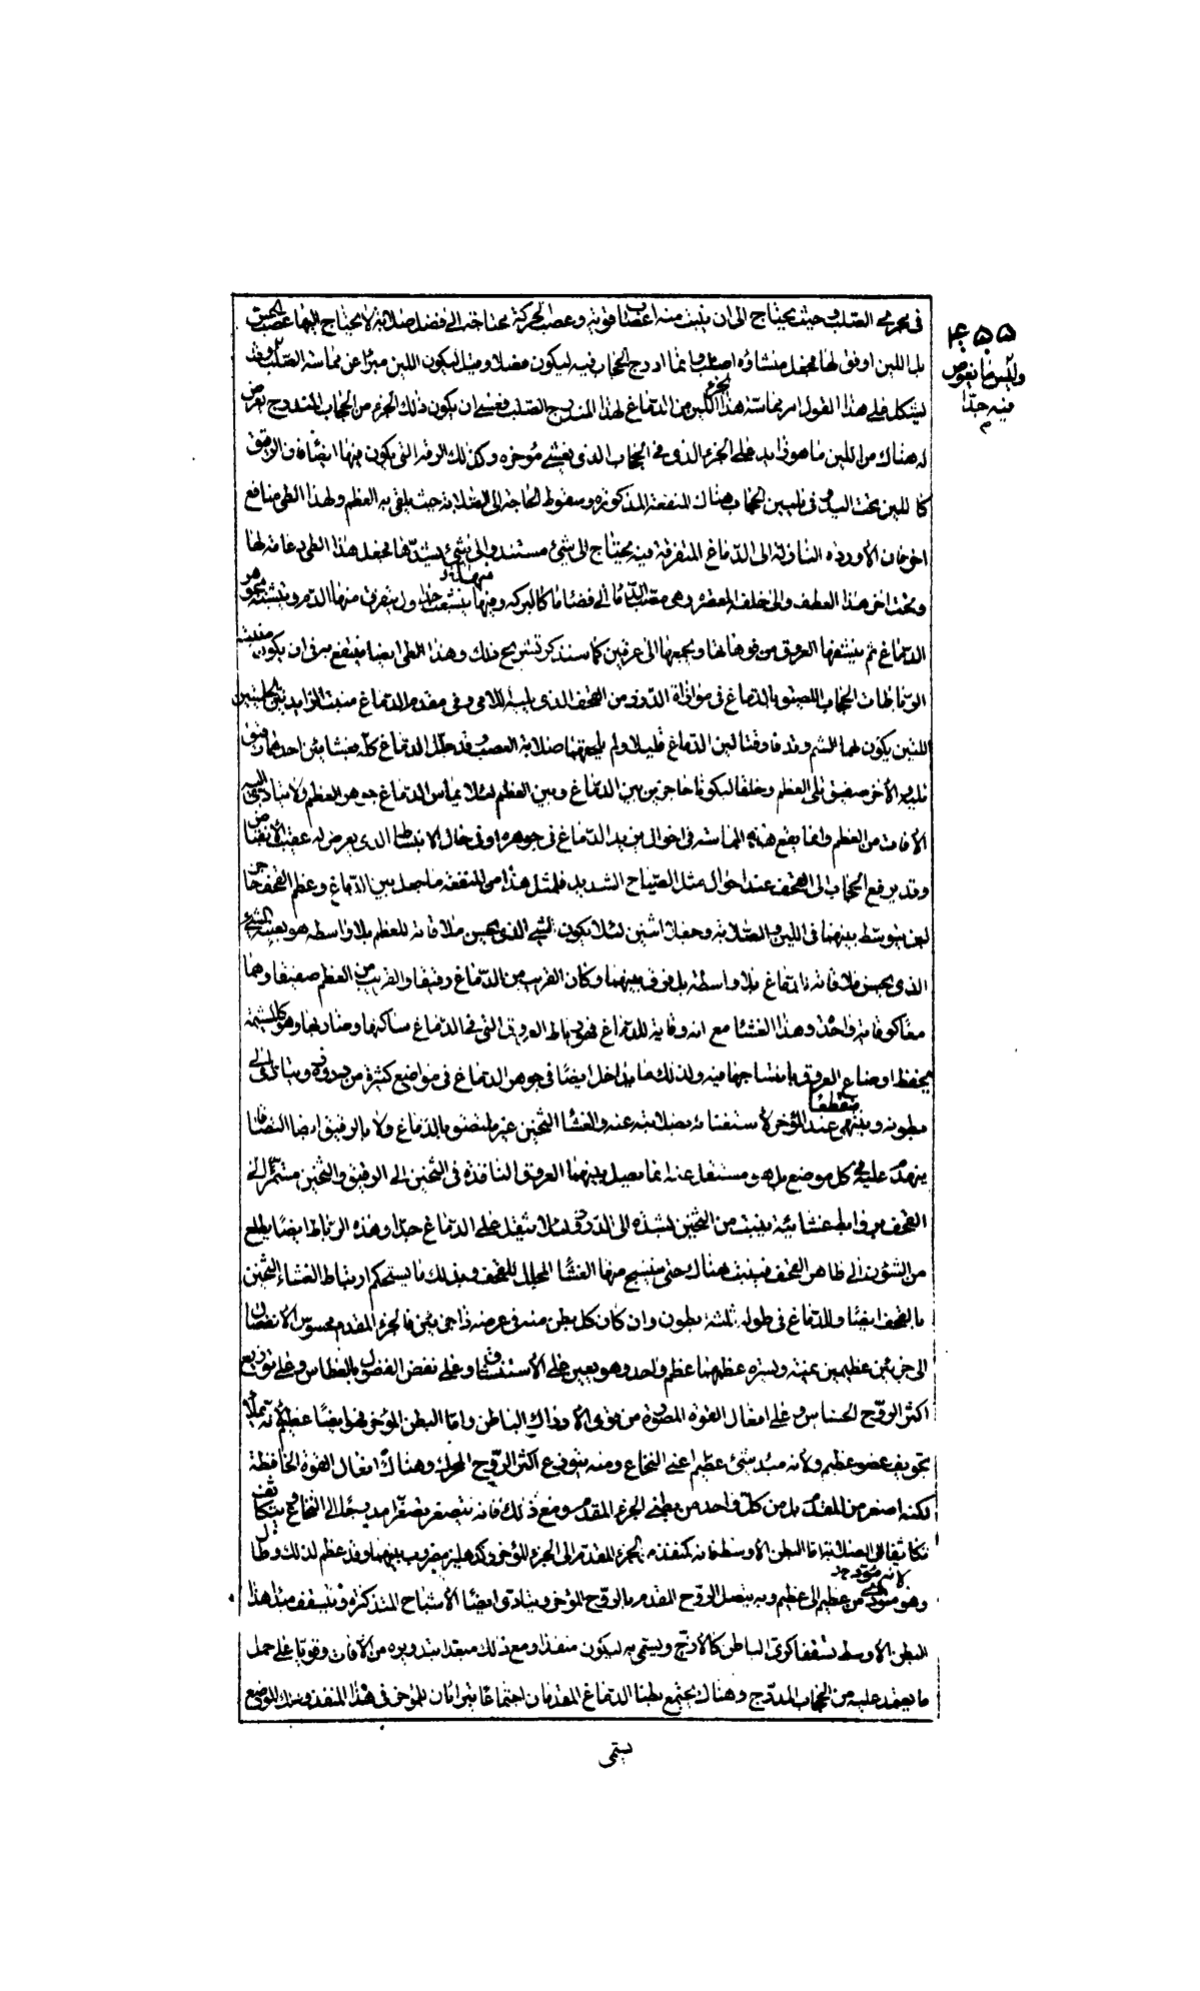 ۴۵۵
وليس مما يغوص
فيه جدا
م
الصلب حيث يحتاج الى ان ينبت منه اعصاب قوية وعصب الحركة محتاجة الى فضل صلابة لا يحتاج اليها عصب الحس
بل اللين اوفق لها فجعل منشاؤه اصلب وانما ادرج الحجاب فيه ليكون فصلا وقيل ليكون اللين مبرّا عن مماسة الصلب
هذا القول امر مماسة هذا الجزء اللين من الدماغ لهذا المندرج الصلب فعسى ان يكون ذلك الجزء من الحجاب المندرج يعرض
له هناك من اللين ما هو زايد على الجزء الذى فى الحجاب الذى يغشى مؤخره وكذلك الرقة التى يكون فيها ايضا فان الرقيق
كاللين تحت اليد فى تليين الحجاب هناك للمنفعة المذكورة وسقوط الحاجة الى الصلابة حيث يلقى به العظم ولهذا الطى منافع
اخر فان الاوردة النازلة الى الدماغ المتفرقة فيه يحتاج الى شئ مستند والى شئ يشدها فجعل هذا الطى دعامة لها
وتحت اخر هذا العطف والى خلفه المعصرة وهى مصب الدماء الى فضاء كالبركة ومنها يتشعب جداول يتفرق منها الدم ويتشبه بجوهر
الدماغ ثم ينشفها العروق من فوهاتها ويجمعها الى عرقين كما سنذكر تشريح ذلك وهذا الطى ايضا منتفع به فى ان يكون منبته
لرباطات الحجاب اللصيق بالدماغ فى موازاة الدرز من القحف الذى يليه اللامى وفى مقدم الدماغ منبت الزايدتين الحلمتين
اللتين يكون لهما الشم وقد فارقتا لين الدماغ قليلا ولم يلحقهما صلابة العصب وقد جلل الدماغ كله بغشائين احدهما رقيق
يليه والاخر صفيق يلى العظم وخلقا ليكونا حاجزين بين الدماغ وبين العظم لئلا يماس الدماغ جوهر العظم ولا يتادى اليه
الافات من العظم وانما يقع هذه المماسة فى احوال تزيد الدماغ فى جوهره او فى حال الانبساط الذى يعرض له عقيب الانقباض
وقد يرفع الحجاب الى القحف عند احوال مثل الصياح الشديد فلمثل هذا من المنفعة ما جعل بين الدماغ وعظم القحف حاجزين
يتوسط بينهما فى اللين والصلابة وجعل اثنين لئلا يكون الشئ الذى يحسن ملاقاته للعظم بلا واسطة هو بعينه الشئ
الذى يحسن ملاقاته الدماغ بلا واسطة بل فرق بينهما وكان القريب من الدماغ رقيقا والقريب من العظم صفيقا وهما
معا كوقاية واحدة وهذا الغشاء مع انه وقاية للدماغ فهو رباط للعروق التى فى الدماغ ساكنها وضاربها وهو كالمشيمة
يحفظ اوضاع العروق بانتساجها فيه ولذلك ما يداخل ايضا فى جوهر الدماغ فى مواضع كثيرة من دروزه ويتادى الى
بطونه وينتهى عند المؤخر منقطعا لاستغنائه بصلابته عنه والغشاء الثخين غير ملتصق بالدماغ ولا بالرقيق ايضا التصاقا
يتهندم عليه فى كل موضع بل هو مستقل عنه انما يصل بينهما العروق النافذة فى الثخين الى الرقيق والثخين مستمر الى
القحف بروابط غشائية ينبت من الثخين تشده الى الدروز لئلا يثقل على الدماغ جدا وهذه الرباط ايضا يطلع
من الشؤون الى ظاهر القحف فينبت هناك حتى ينتسج منها الغشاء المجلل للقحف وبذلك ما يستحكم ارتباط الغشاء الثخين
بالقحف ايضا وللدماغ فى طوله ثلثة بطون وان كان كل بطن منه فى عرضه ذا جزئين فالجزء المقدم محسوس الانفصال
الى جزئين عظيمين يمنة ويسرة عظمهما عظم واحد وهو يعين على الاستنشاق وعلى نفض الفضل بالعطاس وعلى توزيع
اكثر الروح الحساس وعلى افعال القوة المصورة من قوى الادراك الباطن واما البطن المؤخر فهو ايضا عظيم لانه يملاء
تجويف عضو عظيم ولانه مبدء شئ عظيم اعنى النخاع ومنه يتوزع اكثر الروح المحرك وهناك افعال القوة الحافظة
لكنه اصغر من المقدم بل من كل واحد من بطنى الجزء المقدم ومع ذلك فانه يتصغر تصغرا مدرجا الى النخاع ويتكاثف
تكاثفا الى الصلابة فاما البطن الاوسط فانه كمنفذ من الجزء المقدم الى الجزء المؤخر وكدهليز مضروب بينهما وقد عظم لذلك وطال
لانه مؤدى من عظيم الى عظيم وبه يتصل الروح المقدم بالروح المؤخر ويتادى ايضا الاشباح المتذكرة ويتسقف مبدء هذا
البطن الاوسط بسقف كرى الباطن كالازج ويسمى به ليكون منفذا ومع ذلك مبعدا بتدويره من الافات وقويا على حمل
ما يعتمد عليه من الحجاب المدرج وهناك يجتمع بطنا الدماغ المقدمان اجتماعا يتراءان للمؤخر فى هذا المنفذ وذلك الموضع
يسمى